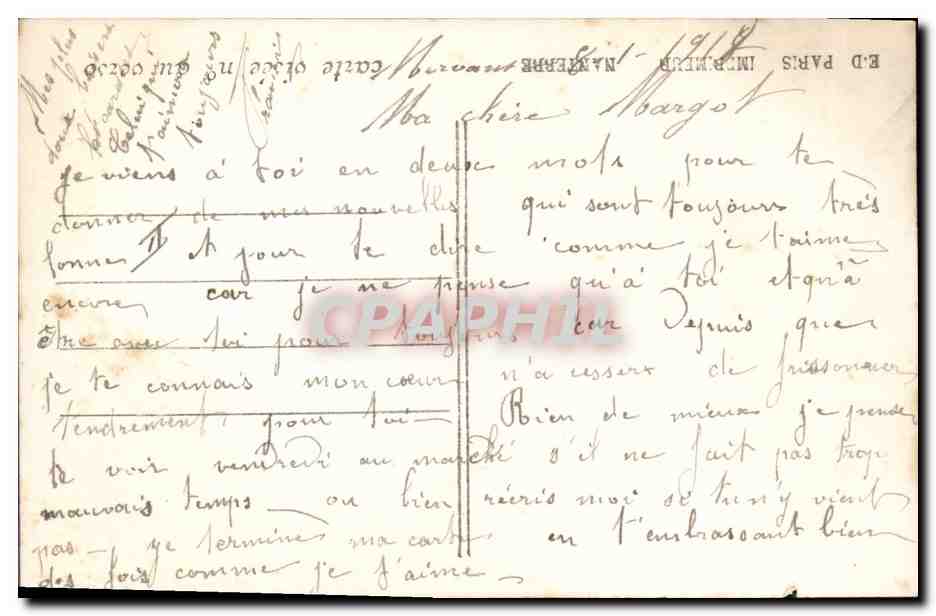 Mervant 1918
Ma chère Margot
je viens à toi en deux mots pour te
donner de mes nouvelles qui sont toujours très
bonnes et pour te dire comme je t'aime
encore car je ne pense qu'à toi et qu'à
être avec toi pour toujours car Depuis que
je te connais mon cœur n'a cesser de frissonner
tendrement pour toi Rien de mieux je pense
te voir vendredi au marché s'il ne fait pas trop
mauvais temps ou bien récris moi si tu n'y vient
pas je termine ma carte en t'embrassant bien
des fois comme je t'aime
Mes plus
doux baisers
Celui qui
t'aimera
toujours
carte visée no au verso
ED PARIS IMP. MEUR NANTERRE
CPAPHIL